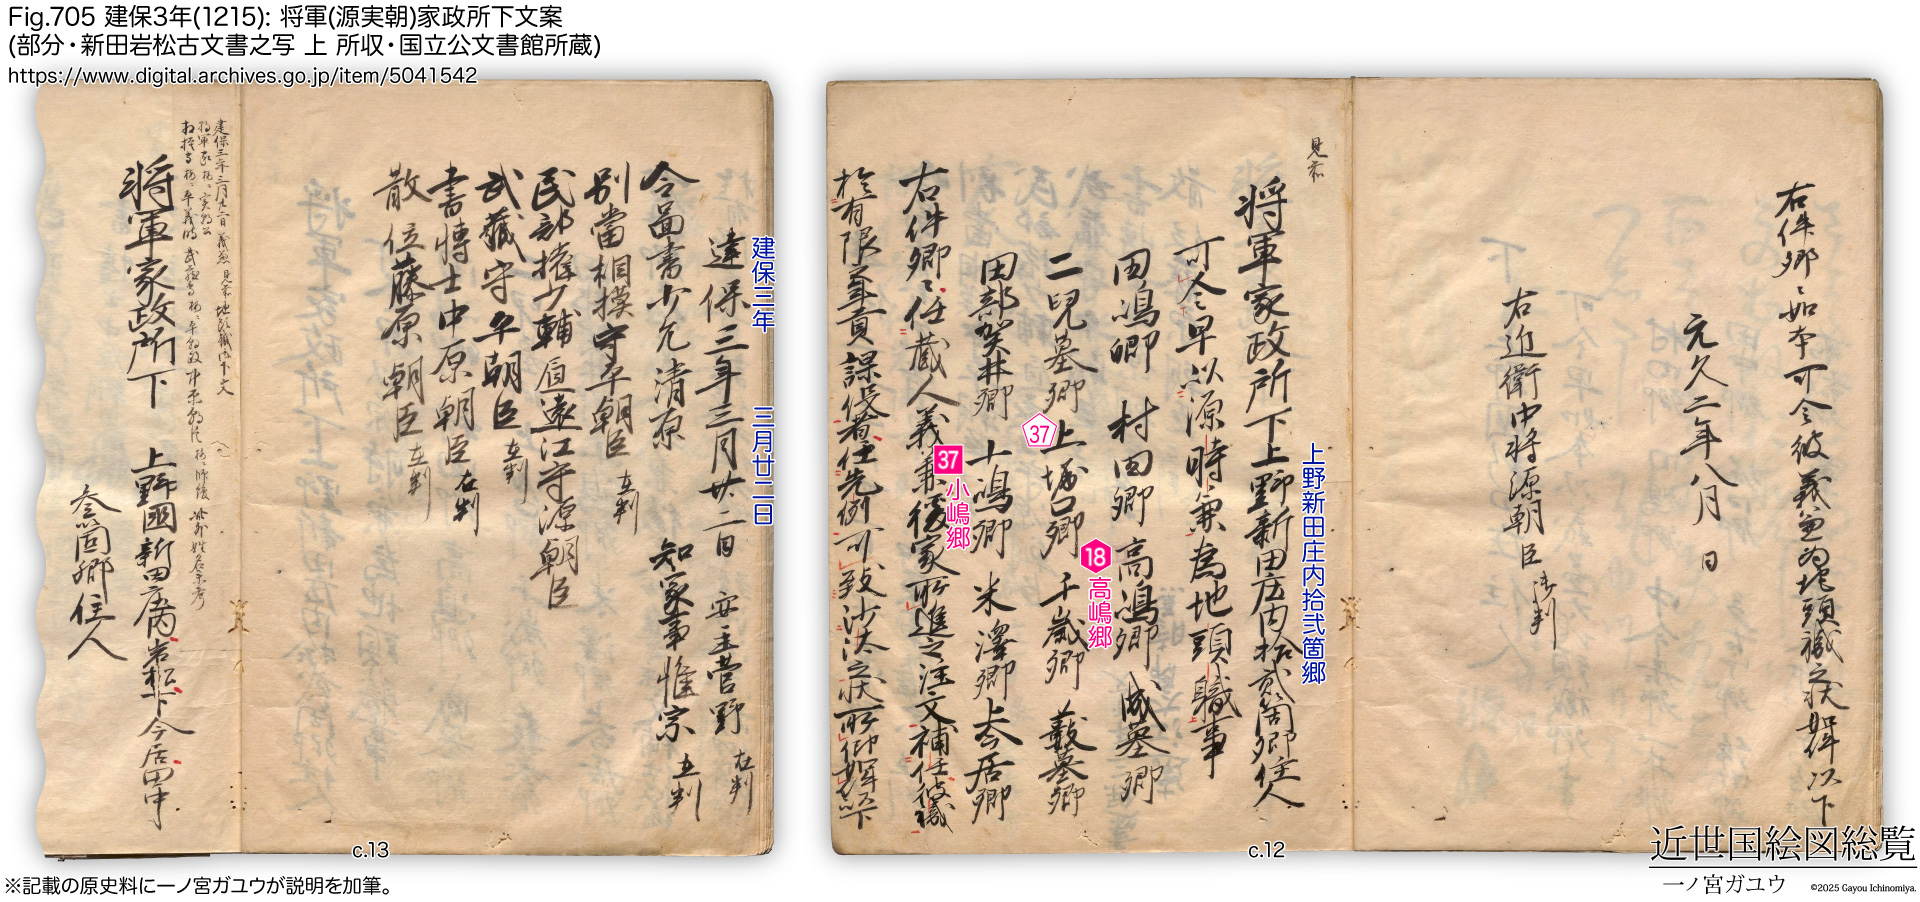 Fig.705 建保3年(1215): 将軍(源実朝)家政所下文案
(部分・新田岩松古文書之写 上 所収・国立公文書館所蔵)
https://www.digital.archives.go.jp/item/5041542
右件郷々如本可令彼義兼為地頭職之状耝以下
元久二年八月 日
右近衛中将源朝臣 御判
見布
将軍家政所下上野新田庄内拾貳箇郷住人
可令早以源時兼為地頭職事
田嶋郷 村田郷 高嶋郷 成墓郷
二兒墓郷 上堀口郷 千歳郷 藪墓郷
田部賀井郷 小嶋郷 米澤郷 上今居郷
右件郷々任蔵人義兼後家所進之注文補任彼職
於有限年貢課役者任先例可致沙汰之状所仰如件以下
上野新田庄内拾弐箇郷
18
高嶋郷
37
37
小嶋郷
建保三年 三月廿二日
建保三年三月廿二日 安主菅野 在判
知家事惟宗 在判
令圖書少允清原
別當相模守平朝臣 在判
民部權少輔兼遠江守源朝臣
武蔵守平朝臣 在判
書博士中原朝臣 在判
散位藤原朝臣 在判
将軍家政所下 上野國新田庄内岩松下今居田中
参箇郷住人
c.13
c.12
近世国絵図総覧
一ノ宮ガユウ
©2025 Gayou Ichinomiya.
※記載の原史料に一ノ宮ガユウが説明を加筆。